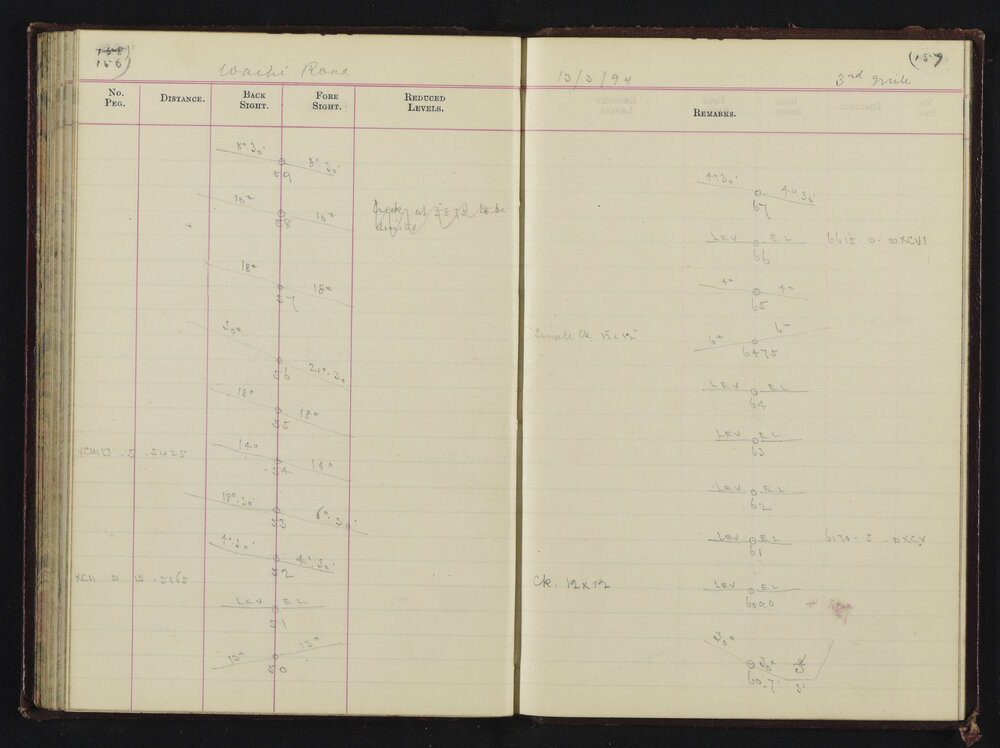 156)
Waihi Road
No. Peg.
Distance.
Back Sight.
Fore Sight.
Reduced Levels.
8°.30'
8°.30'
59
18°
18°
58
at 3873 to be
18°
18°
57
30°
21°.30
56
18°
18°
55
14°
14°
54
5.5425
18°.30'
6°.30'
53
4°.30'
4°.30'
52
XCII □ 15.5165
LEV EL
51
13°
13°
50
(157
13/3/94
3rd mile
Remarks.
4°.30'
4°.30
67
LEV EL
6615-0-□XCVI
66
4°
4°
65
Small Ck 12x12
6°
6°
6475
LEV EL
64
LEV EL
63
LEV EL
62
LEV EL
6170-5-□XCV
61
Ck. 12x12
LEV EL
6090
30°
30°
60.7'